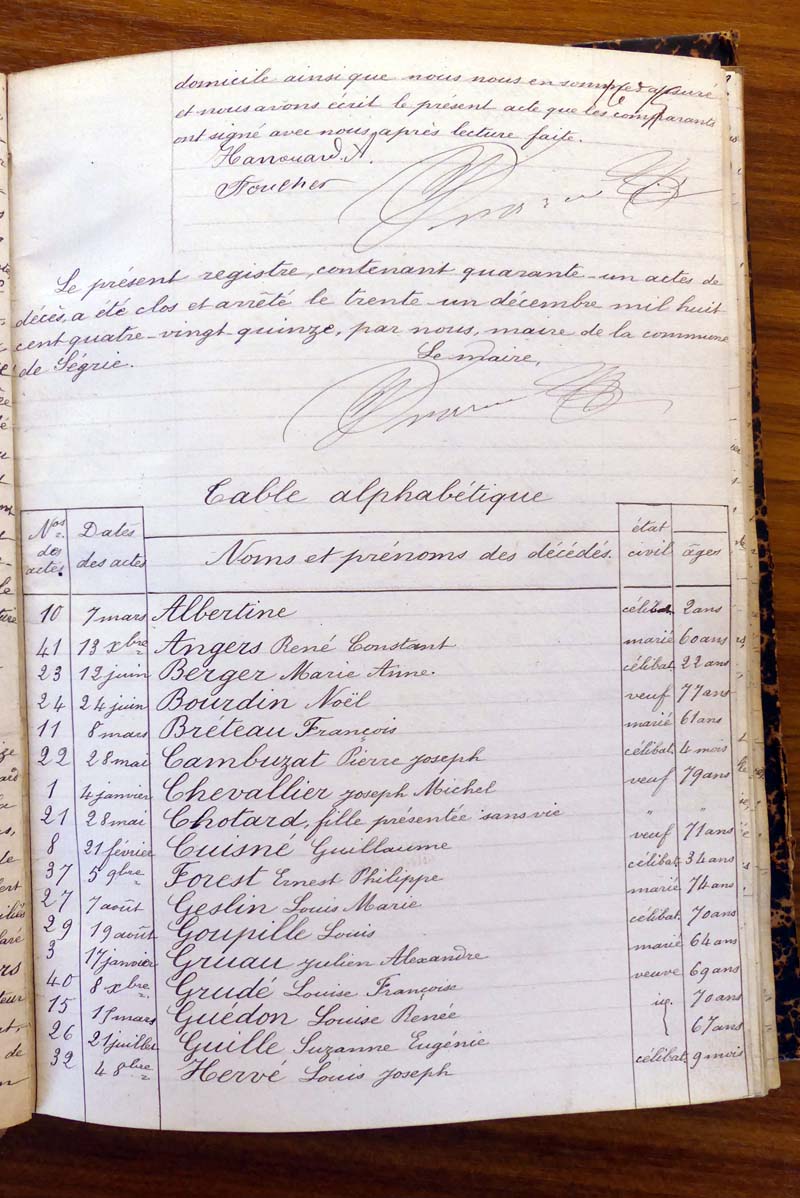 domicile ainsi que nous nous en sommes assuré
et nous avons écrit le présent acte que les comparants
ont signé avec nous, après lecture faite.
Harrouard. A.
Foucher
Le présent registre, contenant quarante-un actes de
décès, a été clos et arrêté le trente-un décembre mil huit
cent quatre-vingt quinze, par nous, maire de la commune
de Ségrie.
Le maire,
Table alphabétique
Nos des actes Dates des actes Noms et prénoms des décédés. état civil âges
10 7 mars Albertine célibat. 2 ans
41 13 xbre Angers René Constant marié 60 ans
23 12 juin Berger Marie Anne. célibat. 22 ans
24 24 juin Bourdin Noël veuf 77 ans
11 8 mars Bréteau François marié 61 ans
22 28 mai Cambuzat Pierre Joseph célibat. 4 mois
1 4 janvier Chevallier Joseph Michel veuf 79 ans
21 28 mai Chotard, fille présentée sans vie " "
8 21 février Cuisné Guillaume veuf 71 ans
37 5 9bre Forest Ernest Philippe célibat. 34 ans
27 7 août Geslin Louis Marie marié 74 ans
29 19 août Goupille Louis célibat. 70 ans
3 17 janvier Gruau Julien Alexandre marié 64 ans
40 8 xbre Grudé Louise Françoise veuve 69 ans
15 mars Guédon Louise Renée 70 ans
26 21 juillet Guille Suzanne Eugénie 67 ans
32 4 8bre Hervé Louis Joseph célibat. 9 mois